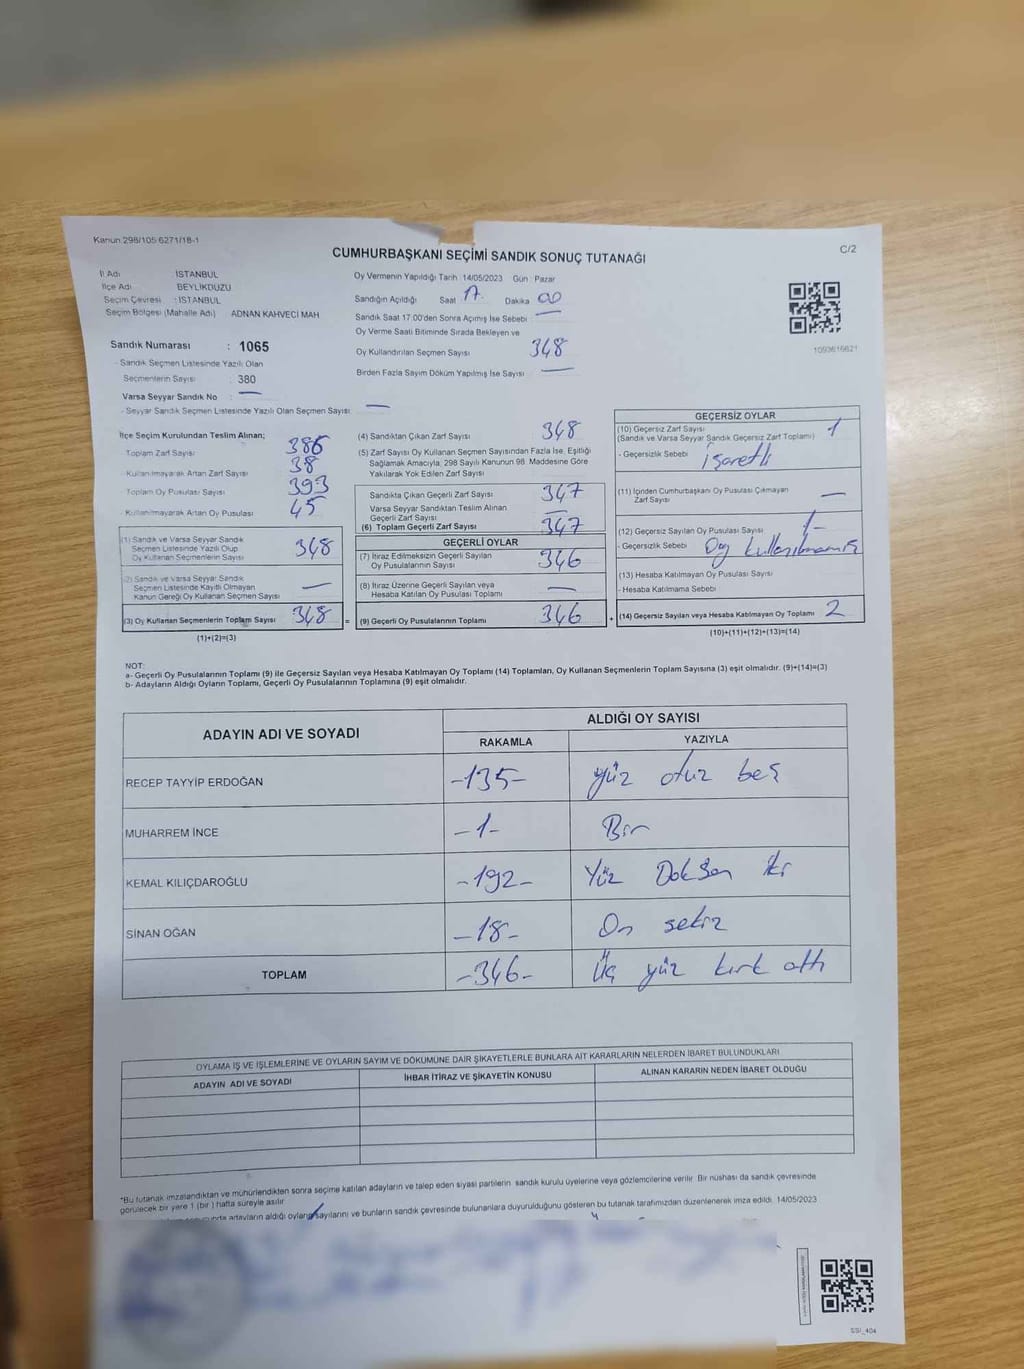 Kanun 298/105 6271/18-1
C/2
CUMHURBAŞKANI SEÇİMİ SANDIK SONUÇ TUTANAĞI
İl Adı İSTANBUL
İlçe Adı BEYLİKDÜZÜ
Seçim Çevresi : İSTANBUL
Seçim Bölgesi (Mahalle Adı) : ADNAN KAHVECİ MAH
Sandık Numarası : 1065
- Sandık Seçmen Listesinde Yazılı Olan
Seçmenlerin Sayısı : 380
Varsa Seyyar Sandık No : —
- Seyyar Sandık Seçmen Listesinde Yazılı Olan Seçmen Sayısı —
Oy Vermenin Yapıldığı Tarih 14/05/2023 Gün : Pazar
Sandığın Açıldığı Saat 17. Dakika 00
Sandık Saat 17.00'den Sonra Açımış İse Sebebi —
Oy Verme Saati Bitiminde Sırada Bekleyen ve
Oy Kullandırılan Seçmen Sayısı 348
Birden Fazla Sayım Döküm Yapılmış İse Sayısı —
1093616621
İlçe Seçim Kurulundan Teslim Alınan;
Toplam Zarf Sayısı 386
- Kullanılmayarak Artan Zarf Sayısı 38
Toplam Oy Pusulası Sayısı 393
- Kullanılmayarak Artan Oy Pusulası 45
(1) Sandık ve Varsa Seyyar Sandık
Seçmen Listesinde Yazılı Olup
Oy Kullanan Seçmenlerin Sayısı 348
(2) Sandık ve Varsa Seyyar Sandık
Seçmen Listesinde Kayıtlı Olmayan
Kanun Gereği Oy Kullanan Seçmen Sayısı —
(3) Oy Kullanan Seçmenlerin Toplam Sayısı 348 =
(1)+(2)=(3)
(4) Sandıktan Çıkan Zarf Sayısı 348
(5) Zarf Sayısı Oy Kullanan Seçmen Sayısından Fazla İse, Eşitliği
Sağlamak Amacıyla, 298 Sayılı Kanunun 98. Maddesine Göre
Yakılarak Yok Edilen Zarf Sayısı
Sandıkta Çıkan Geçerli Zarf Sayısı 347
Varsa Seyyar Sandıktan Teslim Alınan
Geçerli Zarf Sayısı —
(6) Toplam Geçerli Zarf Sayısı 347
GEÇERLİ OYLAR
(7) İtiraz Edilmeksizin Geçerli Sayılan
Oy Pusulalarının Sayısı 346
(8) İtiraz Üzerine Geçerli Sayılan veya
Hesaba Katılan Oy Pusulası Toplamı —
(9) Geçerli Oy Pusulalarının Toplamı 346 +
GEÇERSİZ OYLAR
(10) Geçersiz Zarf Sayısı
(Sandık ve Varsa Seyyar Sandık Geçersiz Zarf Toplamı) 1
- Geçersizlik Sebebi işaretli
(11) İçinden Cumhurbaşkanı Oy Pusulası Çıkmayan
Zarf Sayısı —
(12) Geçersiz Sayılan Oy Pusulası Sayısı 1-
- Geçersizlik Sebebi Oy kullanılmamış
(13) Hesaba Katılmayan Oy Pusulası Sayısı
- Hesaba Katılmama Sebebi
(14) Geçersiz Sayılan veya Hesaba Katılmayan Oy Toplamı 2
(10)+(11)+(12)+(13)=(14)
NOT:
a- Geçerli Oy Pusulalarının Toplamı (9) ile Geçersiz Sayılan veya Hesaba Katılmayan Oy Toplamı (14) Toplamları, Oy Kullanan Seçmenlerin Toplam Sayısına (3) eşit olmalıdır. (9)+(14)=(3)
b- Adayların Aldığı Oyların Toplamı, Geçerli Oy Pusulalarının Toplamına (9) eşit olmalıdır.
ADAYIN ADI VE SOYADI
ALDIĞI OY SAYISI
RAKAMLA YAZIYLA
RECEP TAYYİP ERDOĞAN -135- yüz otuz beş
MUHARREM İNCE -1- Bir
KEMAL KILIÇDAROĞLU -192- Yüz Doksan iki
SİNAN OĞAN -18- On sekiz
TOPLAM -346- Üç yüz kırk altı
OYLAMA İŞ VE İŞLEMLERİNE VE OYLARIN SAYIM VE DÖKÜMÜNE DAİR ŞİKAYETLERLE BUNLARA AİT KARARLARIN NELERDEN İBARET BULUNDUKLARI
ADAYIN ADI VE SOYADI İHBAR İTİRAZ VE ŞİKAYETİN KONUSU ALINAN KARARIN NEDEN İBARET OLDUĞU
*Bu tutanak imzalandıktan ve mühürlendikten sonra seçime katılan adayların ve talep eden siyasi partilerin sandık kurulu üyelerine veya gözlemcilerine verilir. Bir nüshası da sandık çevresinde
görülecek bir yere 1 (bir) hafta süreyle asılır.
adayların aldığı oyların sayılarını ve bunların sandık çevresinde bulunanlara duyurulduğunu gösteren bu tutanak tarafımızdan düzenlenerek imza edildi. 14/05/2023
SSI_404